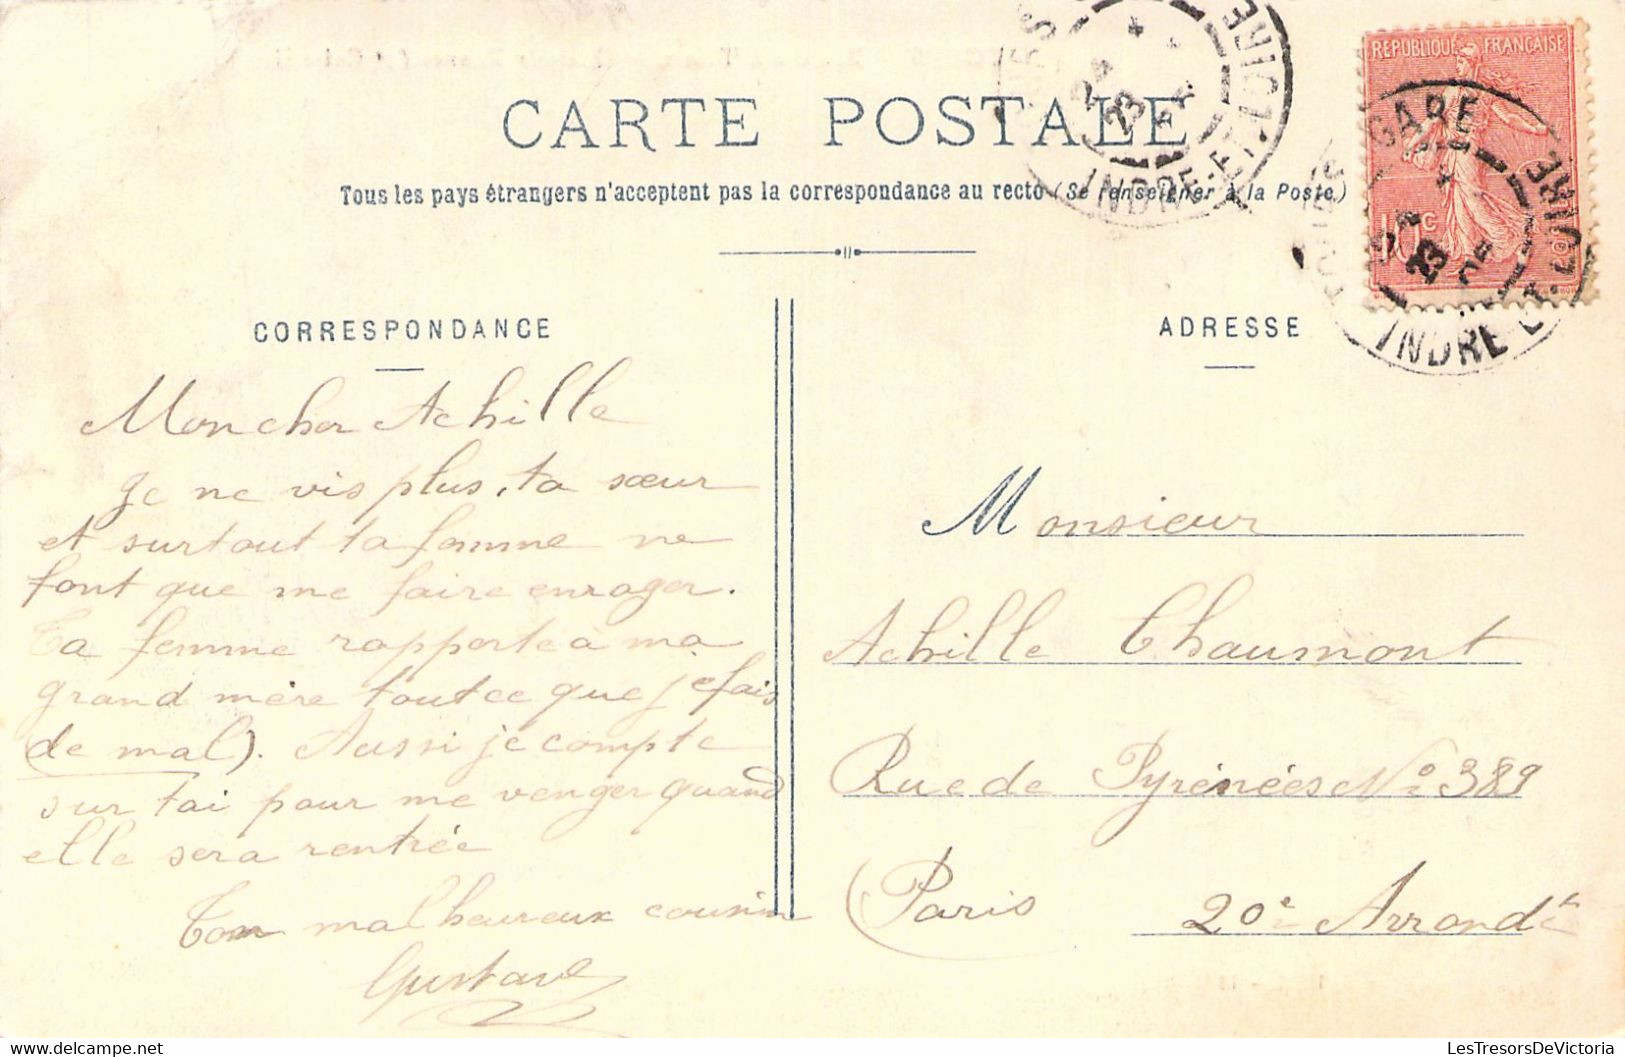 CARTE POSTALE
Tous les pays étrangers n'acceptent pas la correspondance au recto (Se renseigner à la Poste.)
REPUBLIQUE FRANÇAISE
10 c
GARE
INDRE-ET-LOIRE
23
INDRE-ET-LOIRE
23
CORRESPONDANCE
Mon cher Achille
Je ne vis plus, ta sœur
et surtout ta femme ne
font que me faire enrager.
Ta femme rapporte à ma
grand mère tout ce que je fais
(de mal). Aussi je compte
sur toi pour me venger quand
elle sera rentrée
Ton malheureux cousin
Gustave
ADRESSE
Monsieur
Achille Chaumont
Rue de Pyrénées No 389
(Paris 20e Arrondt
LesTresorsDeVictoria